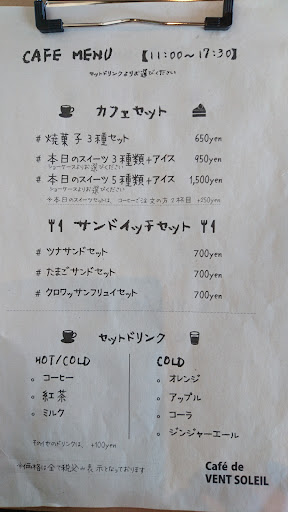 CAFE MENU 【11:00〜17:30】
セットドリンクよりお選びください
カフェセット
# 焼菓子3種セット 650yen
# 本日のスイーツ3種類+アイス 950yen
ショーケースよりお選びください
# 本日のスイーツ5種類+アイス 1,500yen
ショーケースよりお選びください
*本日のスイーツセットは、コーヒーご注文の方2杯目 +250yen
サンドイッチセット
# ツナサンドセット 700yen
# たまごサンドセット 700yen
# クロワッサンフリュイセット 700yen
セットドリンク
HOT/COLD
コーヒー
紅茶
ミルク
その他のドリンクは、+100yen
COLD
オレンジ
アップル
コーラ
ジンジャーエール
*価格は全て税込の表示となっております
Café de
VENT SOLEIL